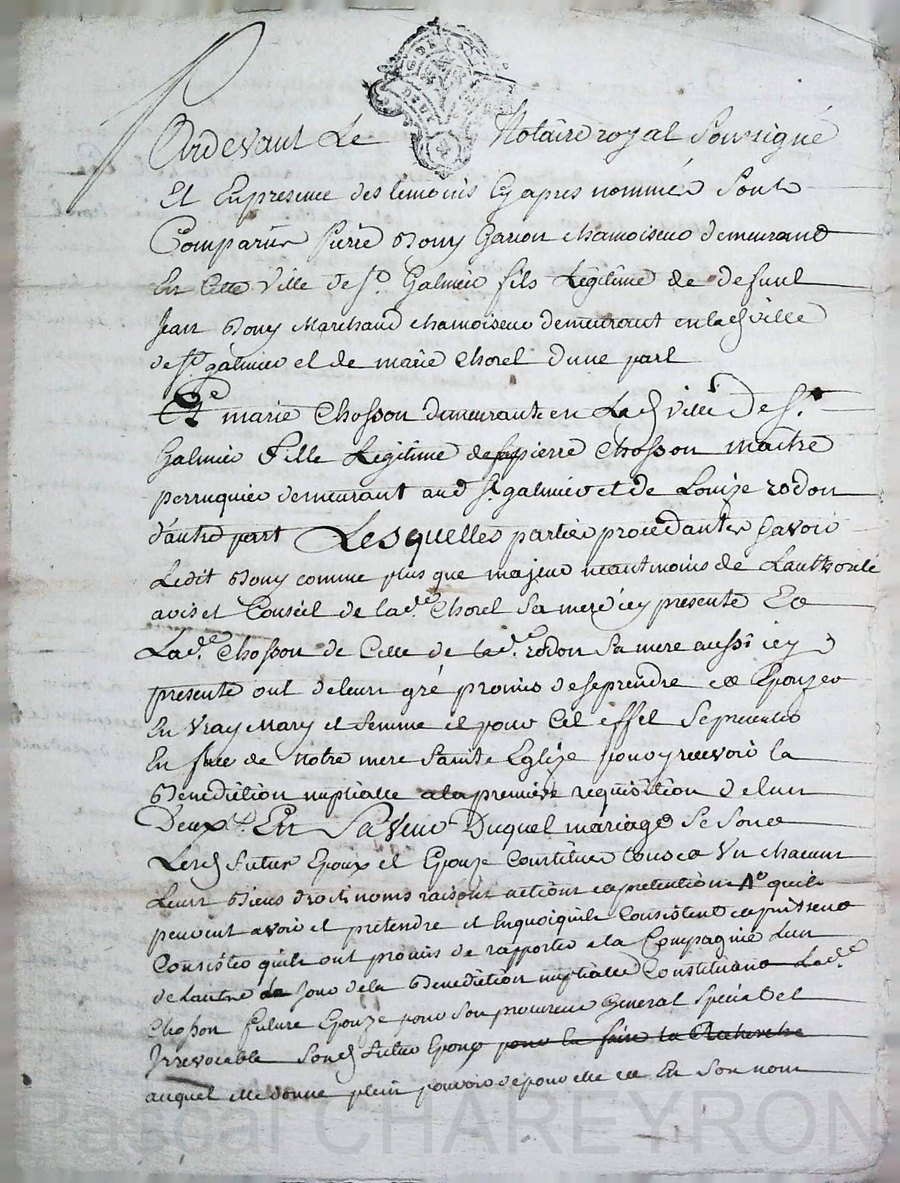 Pardevant Le Notaire royal Soussigné
Et En presence des temoins Cy apres nommés Sont
Comparus Pierre Bony Garçon chamoiseur demeurant
En Cette Ville de St. Galmier fils Légitime de defunt
Jean Bony Marchand chamoiseur demeurant en lad ville
de St. galmier et de marie Chorel d'une part
Et marie Chosson demeurante en Lad ville De St.
Galmier Fille Légitime de pierre Chosson maitre
perruquier demeurant aud St. galmier et de Louize rodon
d'autre part Lesquelles parties procedantes Savoir
Ledit Bony comme plus que majeur neantmoins de Lauthorité
avis et Conseil de lade. Chorel Sa mere icy presente Et
Lade. Chosson de Celle de lade. rodon Sa mere aussi icy
presente ont de leur gré promis de se prendre et Epouzer
En Vray Mary et femme et pour Cet effet Se presenter
En face de Notre mere Sainte Eglize pour y recevoir la
Benediction nuptialle a la premiere requisition de lun
Deux. En Faveur Duquel mariage Se Sont
Lesd futurs Epoux et Epouze Constitués tous et Un chacun
Leurs Biens droits noms raisons actions et pretentions qu'ils
peuvent avoir et pretendre et En quoi qu'ils Consistent et puissent
Consister qu'ils ont promis de rapporter a la Compagnie Lun
de Lautre Le Jour de la Benediction nuptialle Constituant Lade.
Chosson future Epouze pour Son procureur General Special et
Irrevocable Sond futur Epoux pour la faire la Recherche
auquel elle donne plein pouvoir de pour elle et En Son nom
Pascal CHAREYRON